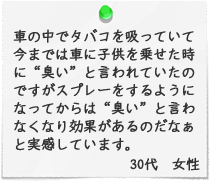 車の中でタバコを吸っていて
今までは車に子供を乗せた時
に“臭い”と言われていたの
ですがスプレーをするように
なってからは“臭い”と言わ
なくなり効果があるのだなぁ
と実感しています。
30代　女性